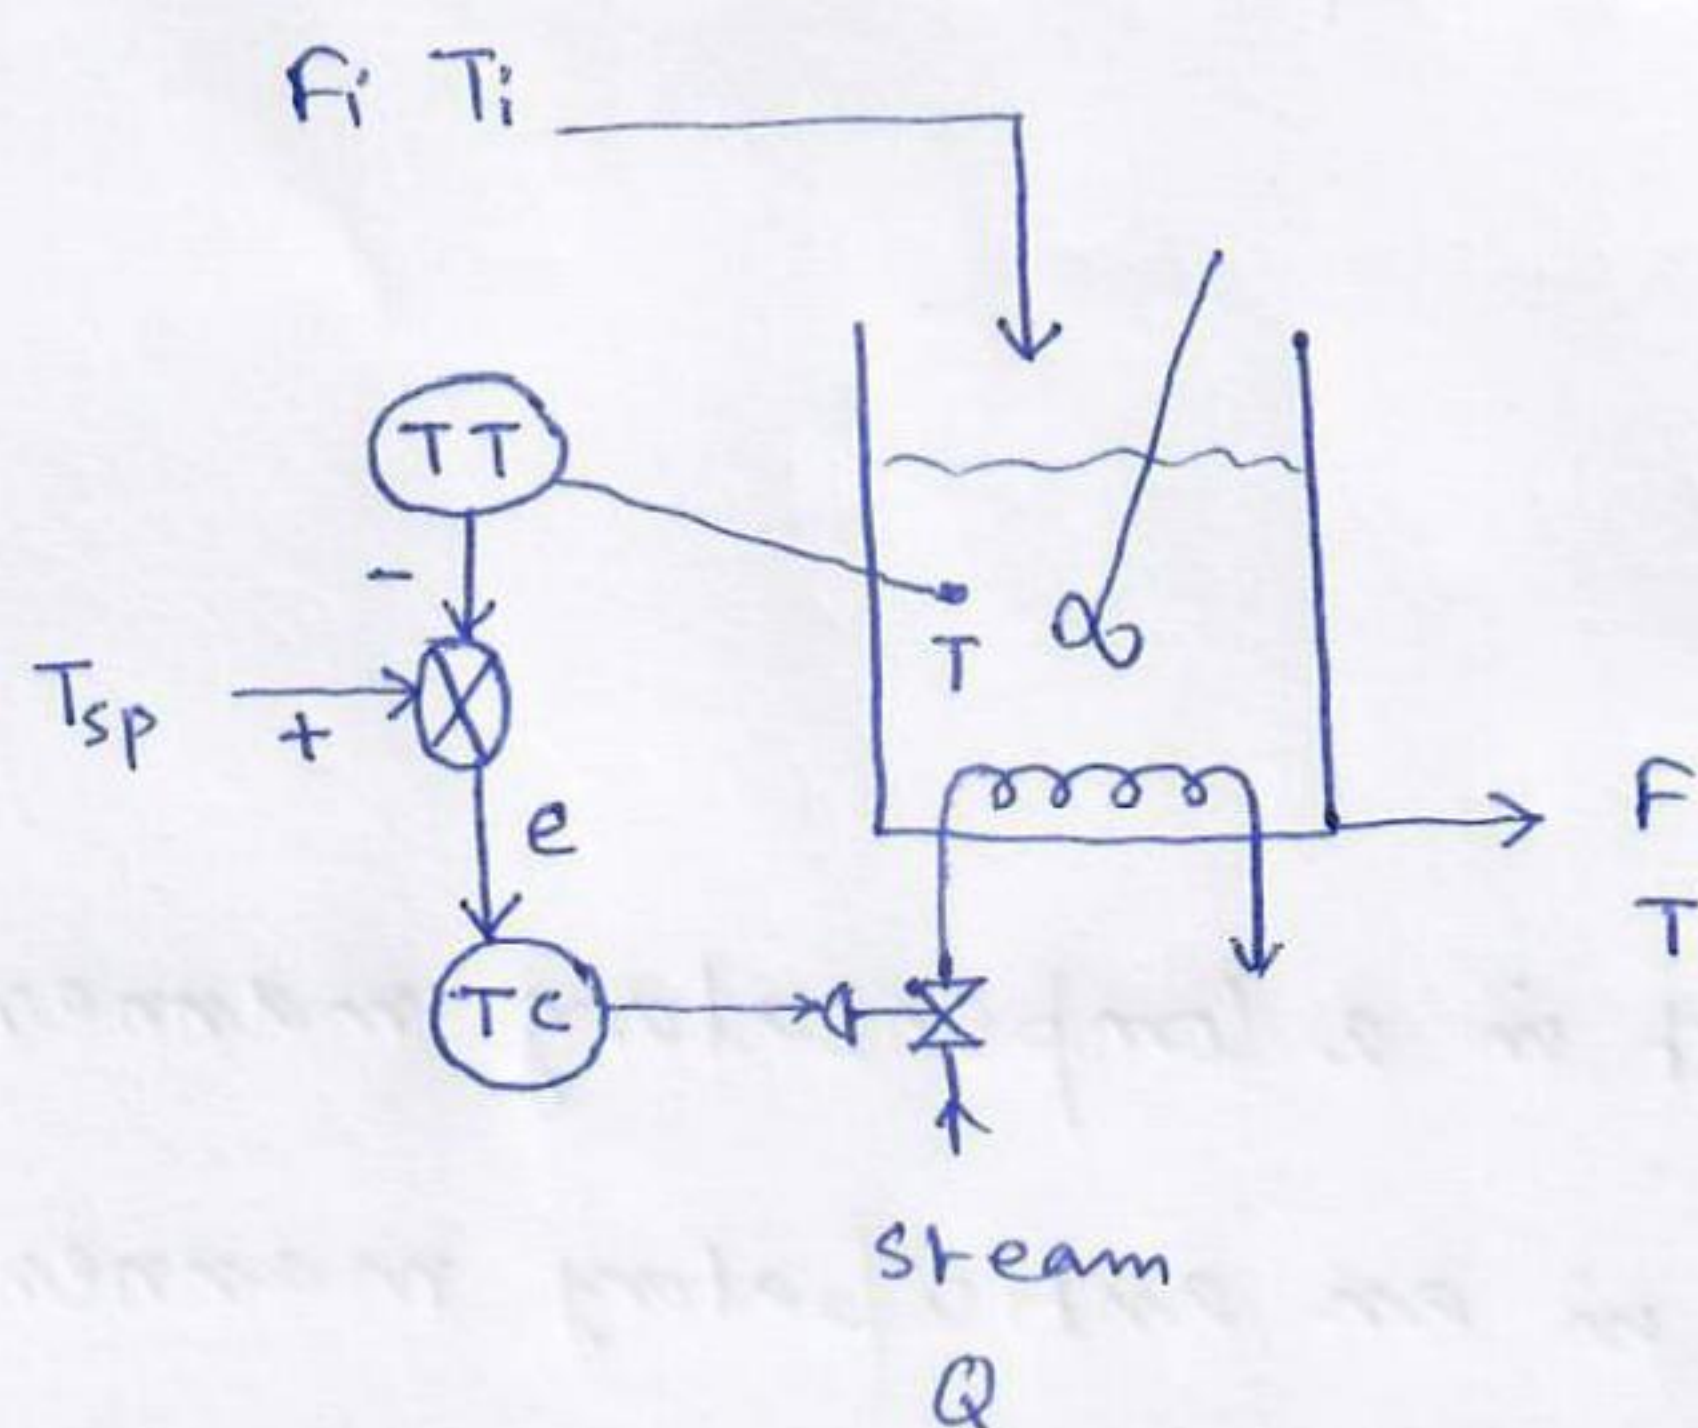 Fi Ti
TT
-
T
Tsp
+
e
F
T
TC
steam
Q